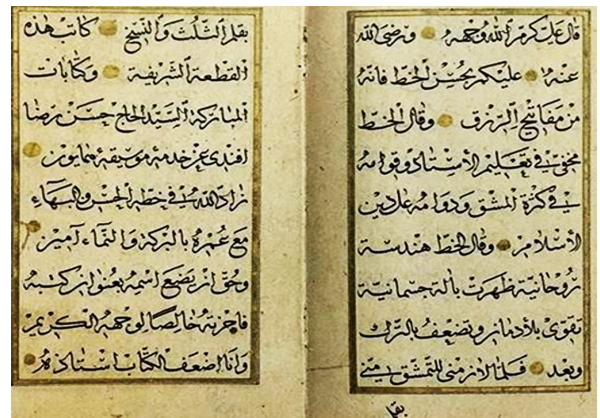 قال علي كرم الله وجهه ورضى الله
عنه عليكم بحسن الخط فانه
من مفاتيح الرزق وقال الخط
مخفي في تعليم الأستاذ وقوامه
في كثرة المشق ودوامه على دين
الأسلام وقال الخط هندسة
روحانية ظهرت بآلة جسمانية
تقوى بالادمان وتضعف بالترك
وبعد فلما لازمني للتمشق مني
بقلم الثلث والنسخ كاتب هذه
القطعة الشريفة وكتابات
المباركة السيد الحاج حسن رضا
افندى عن خدمة موسيقه همايون
زاد الله في خطه الحسن والبهاء
مع عمره بالبركة والنماء آمين
وحق ان يضع اسمه بعنوان كتبه
فاجزته خالصا لوجهه الكريم
وانا اضعف الكتاب استاذه